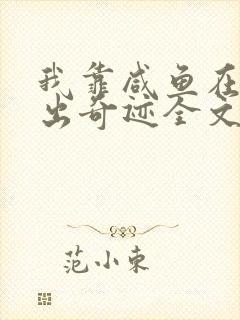 我靠咸鱼在
出奇迹全文
范小东